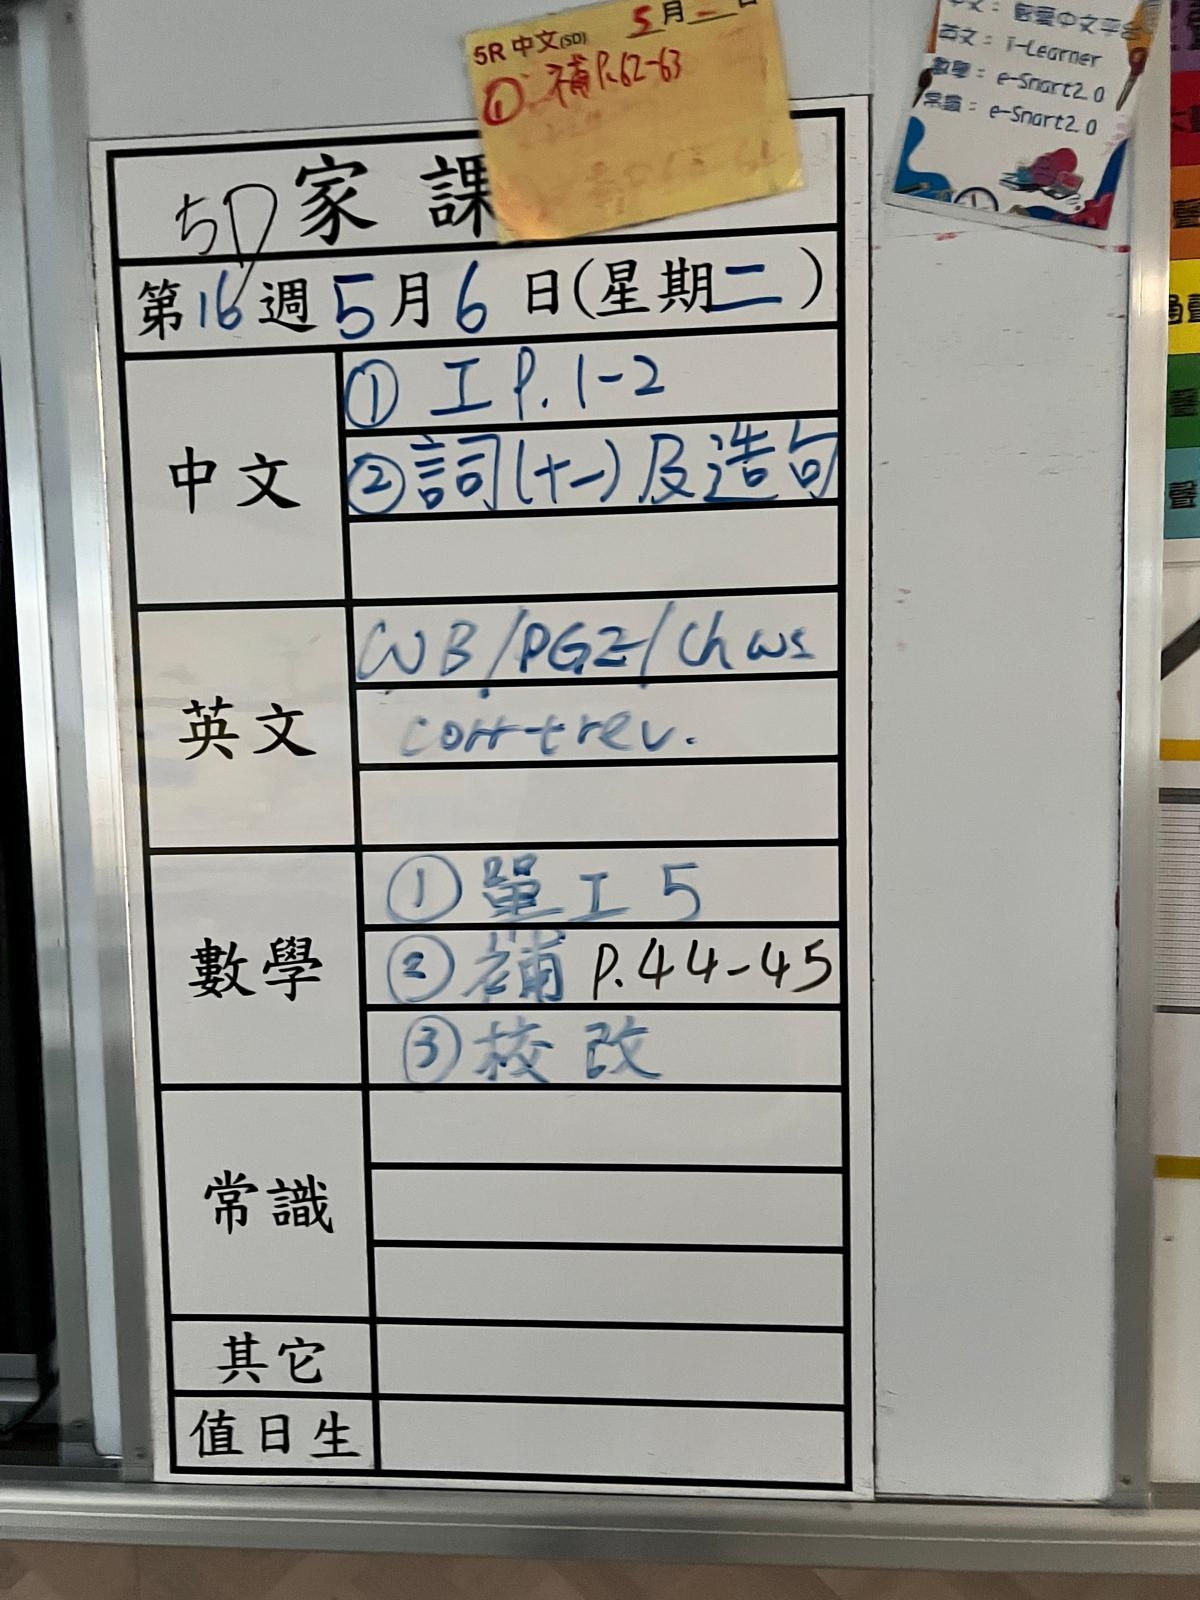 5月 日
5R 中文(5D)
① 補P.62-63
中文：敢愛中文平台
英文：i-Learner
數學：e-Smart2.0
常識：e-Smart2.0
5D 家課
第16週5月6日(星期二)
中文
① 工P.1-2
②詞(十一)及造句
英文
WB/PGE/Ch ws
corr+rev.
數學
① 單工5
② 補 P.44-45
③ 校改
常識
其它
值日生